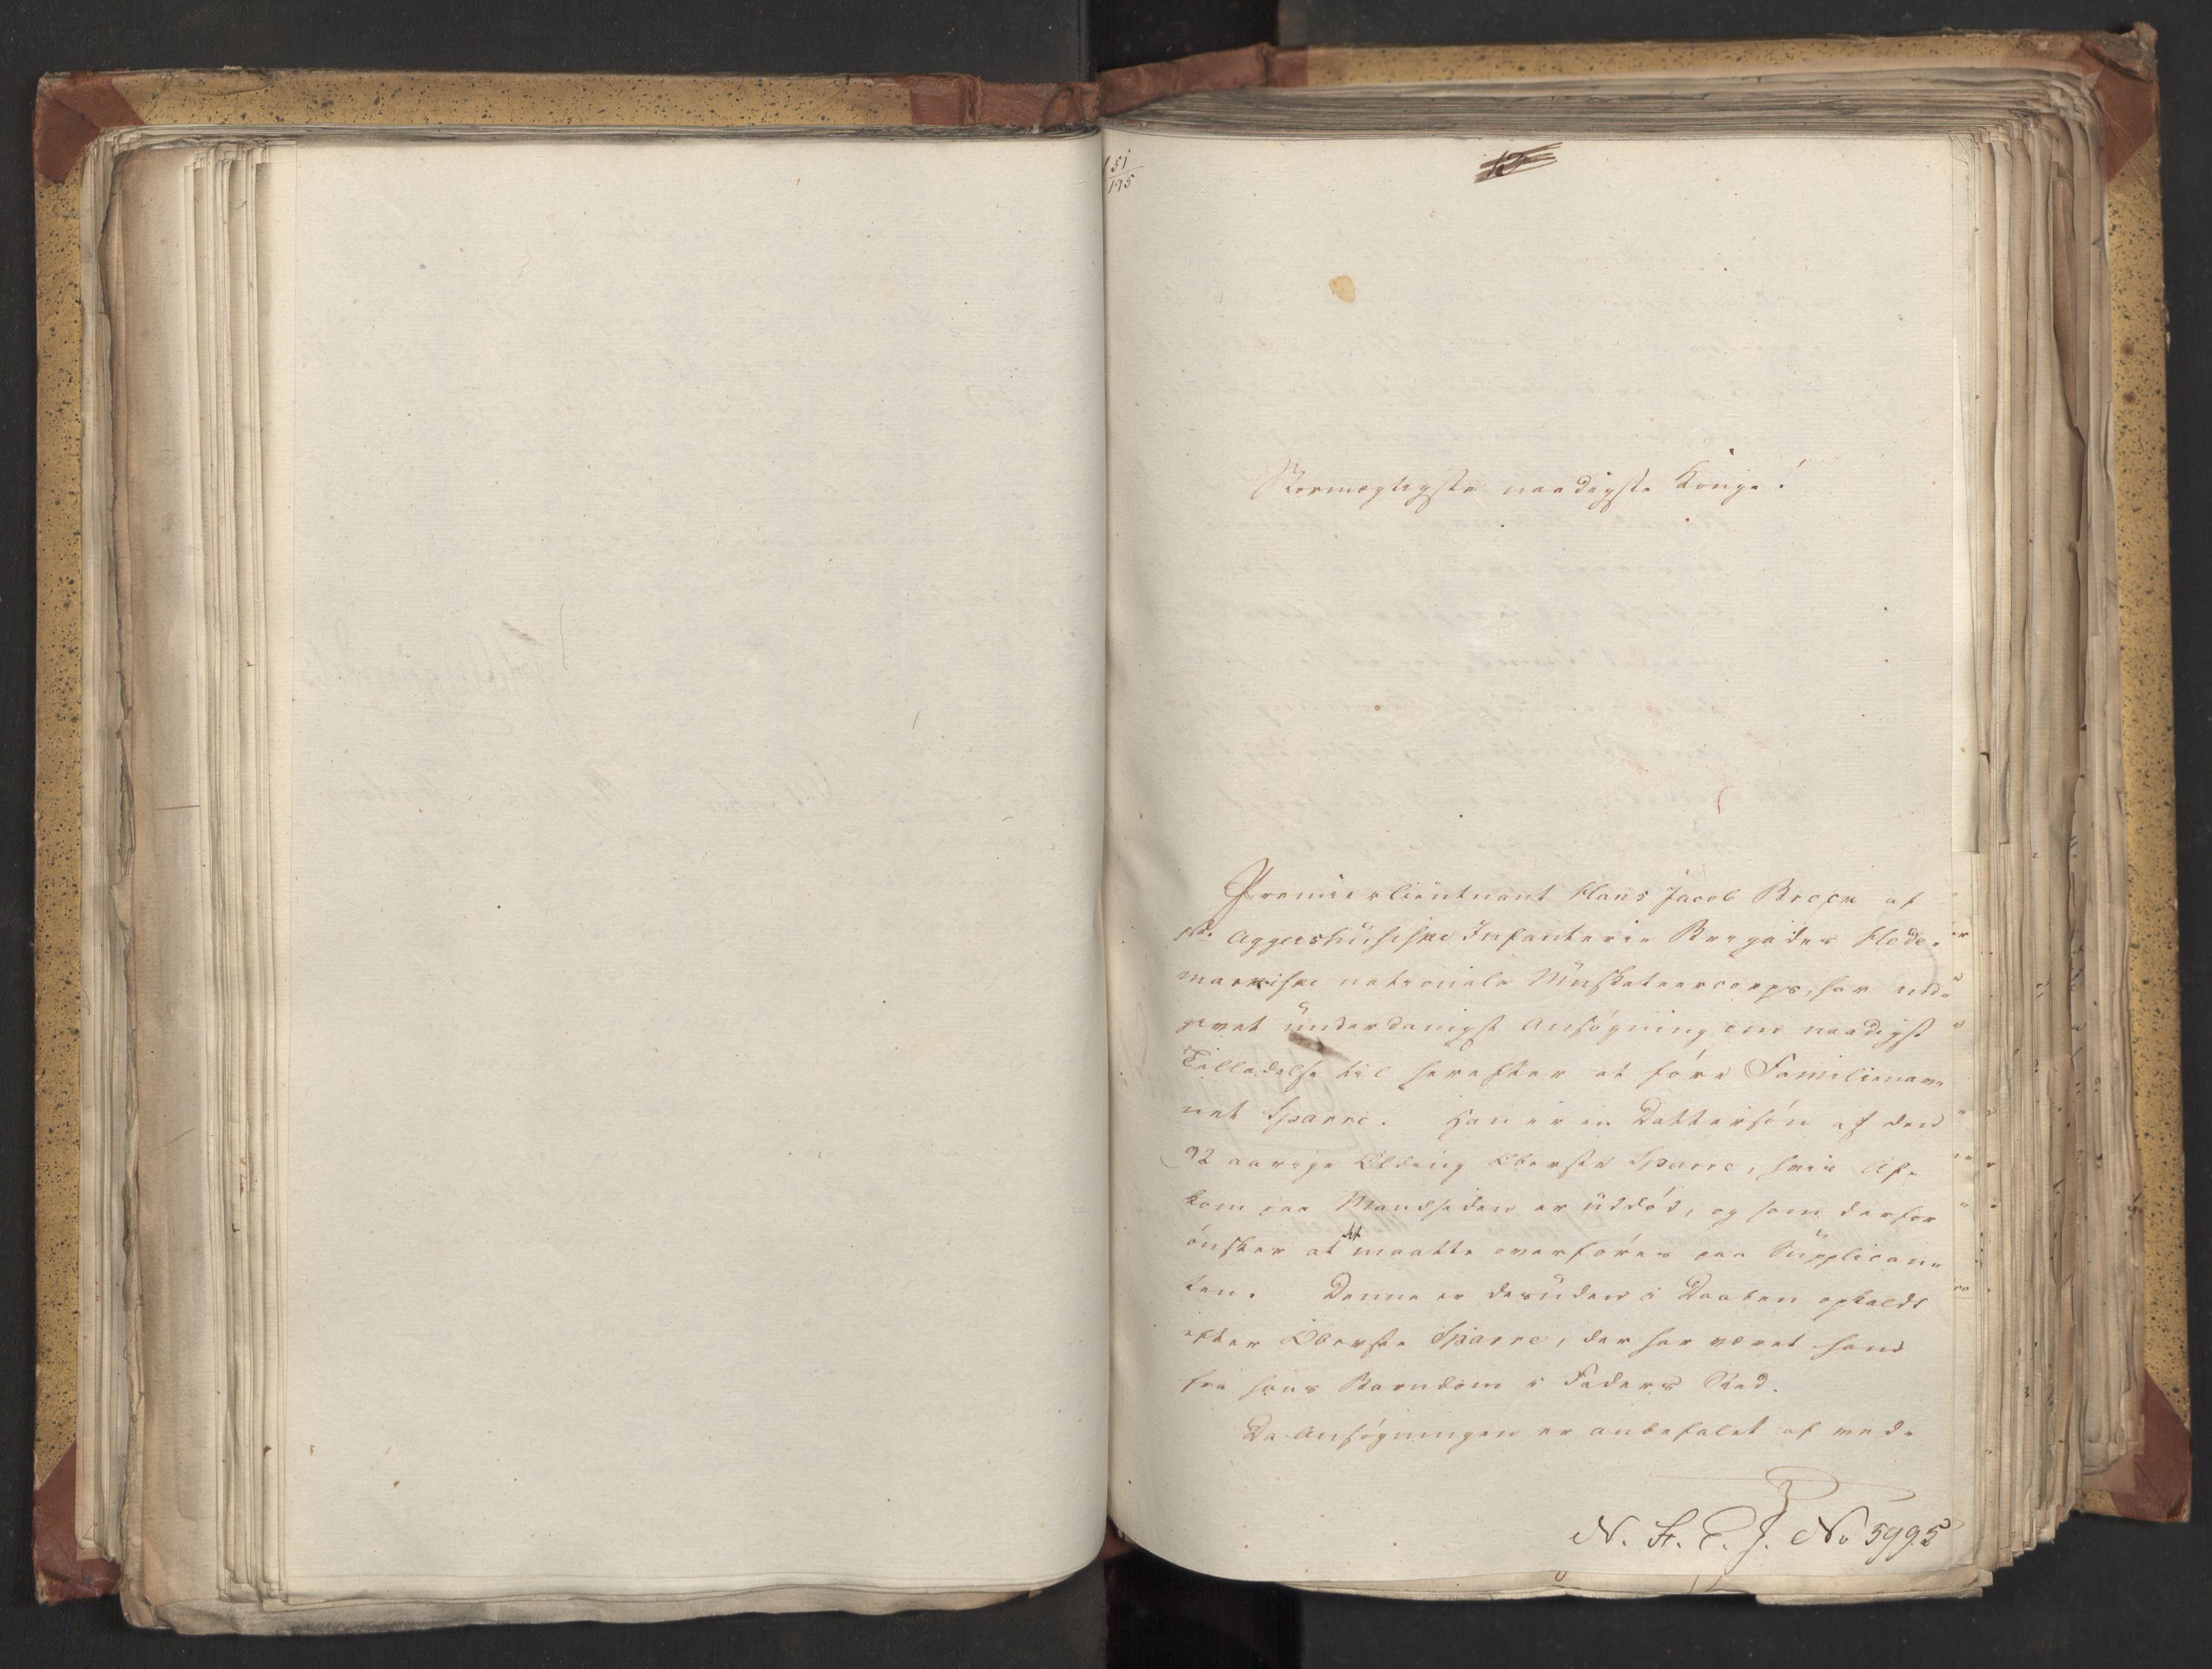 51
195
Stormægtigste naadigste Konge!
Premierlieutnant Hans Jacob af
Aggershusiske Infanterie Brigades Hede-
markiske nationale Musketeercorps, har ind-
givet underdanigst Ansøgning om naadigst
Tilladelse til herefter at føre Familienav-
net Sparre. Han er en Dattersøn af den
92 aarige Olding Oberste Sparre, hvis Af-
kom paa Mandsiden er uddød, og som derfor
ønsker at maatte overføres paa Supplican-
ten. Denne er desuden i Daaben opkaldt
efter Oberste Sparre, der har været ham
fra hans Barndom i Faders Sted.
Da Ansøgningen er anbefalet af ved-
No 5995